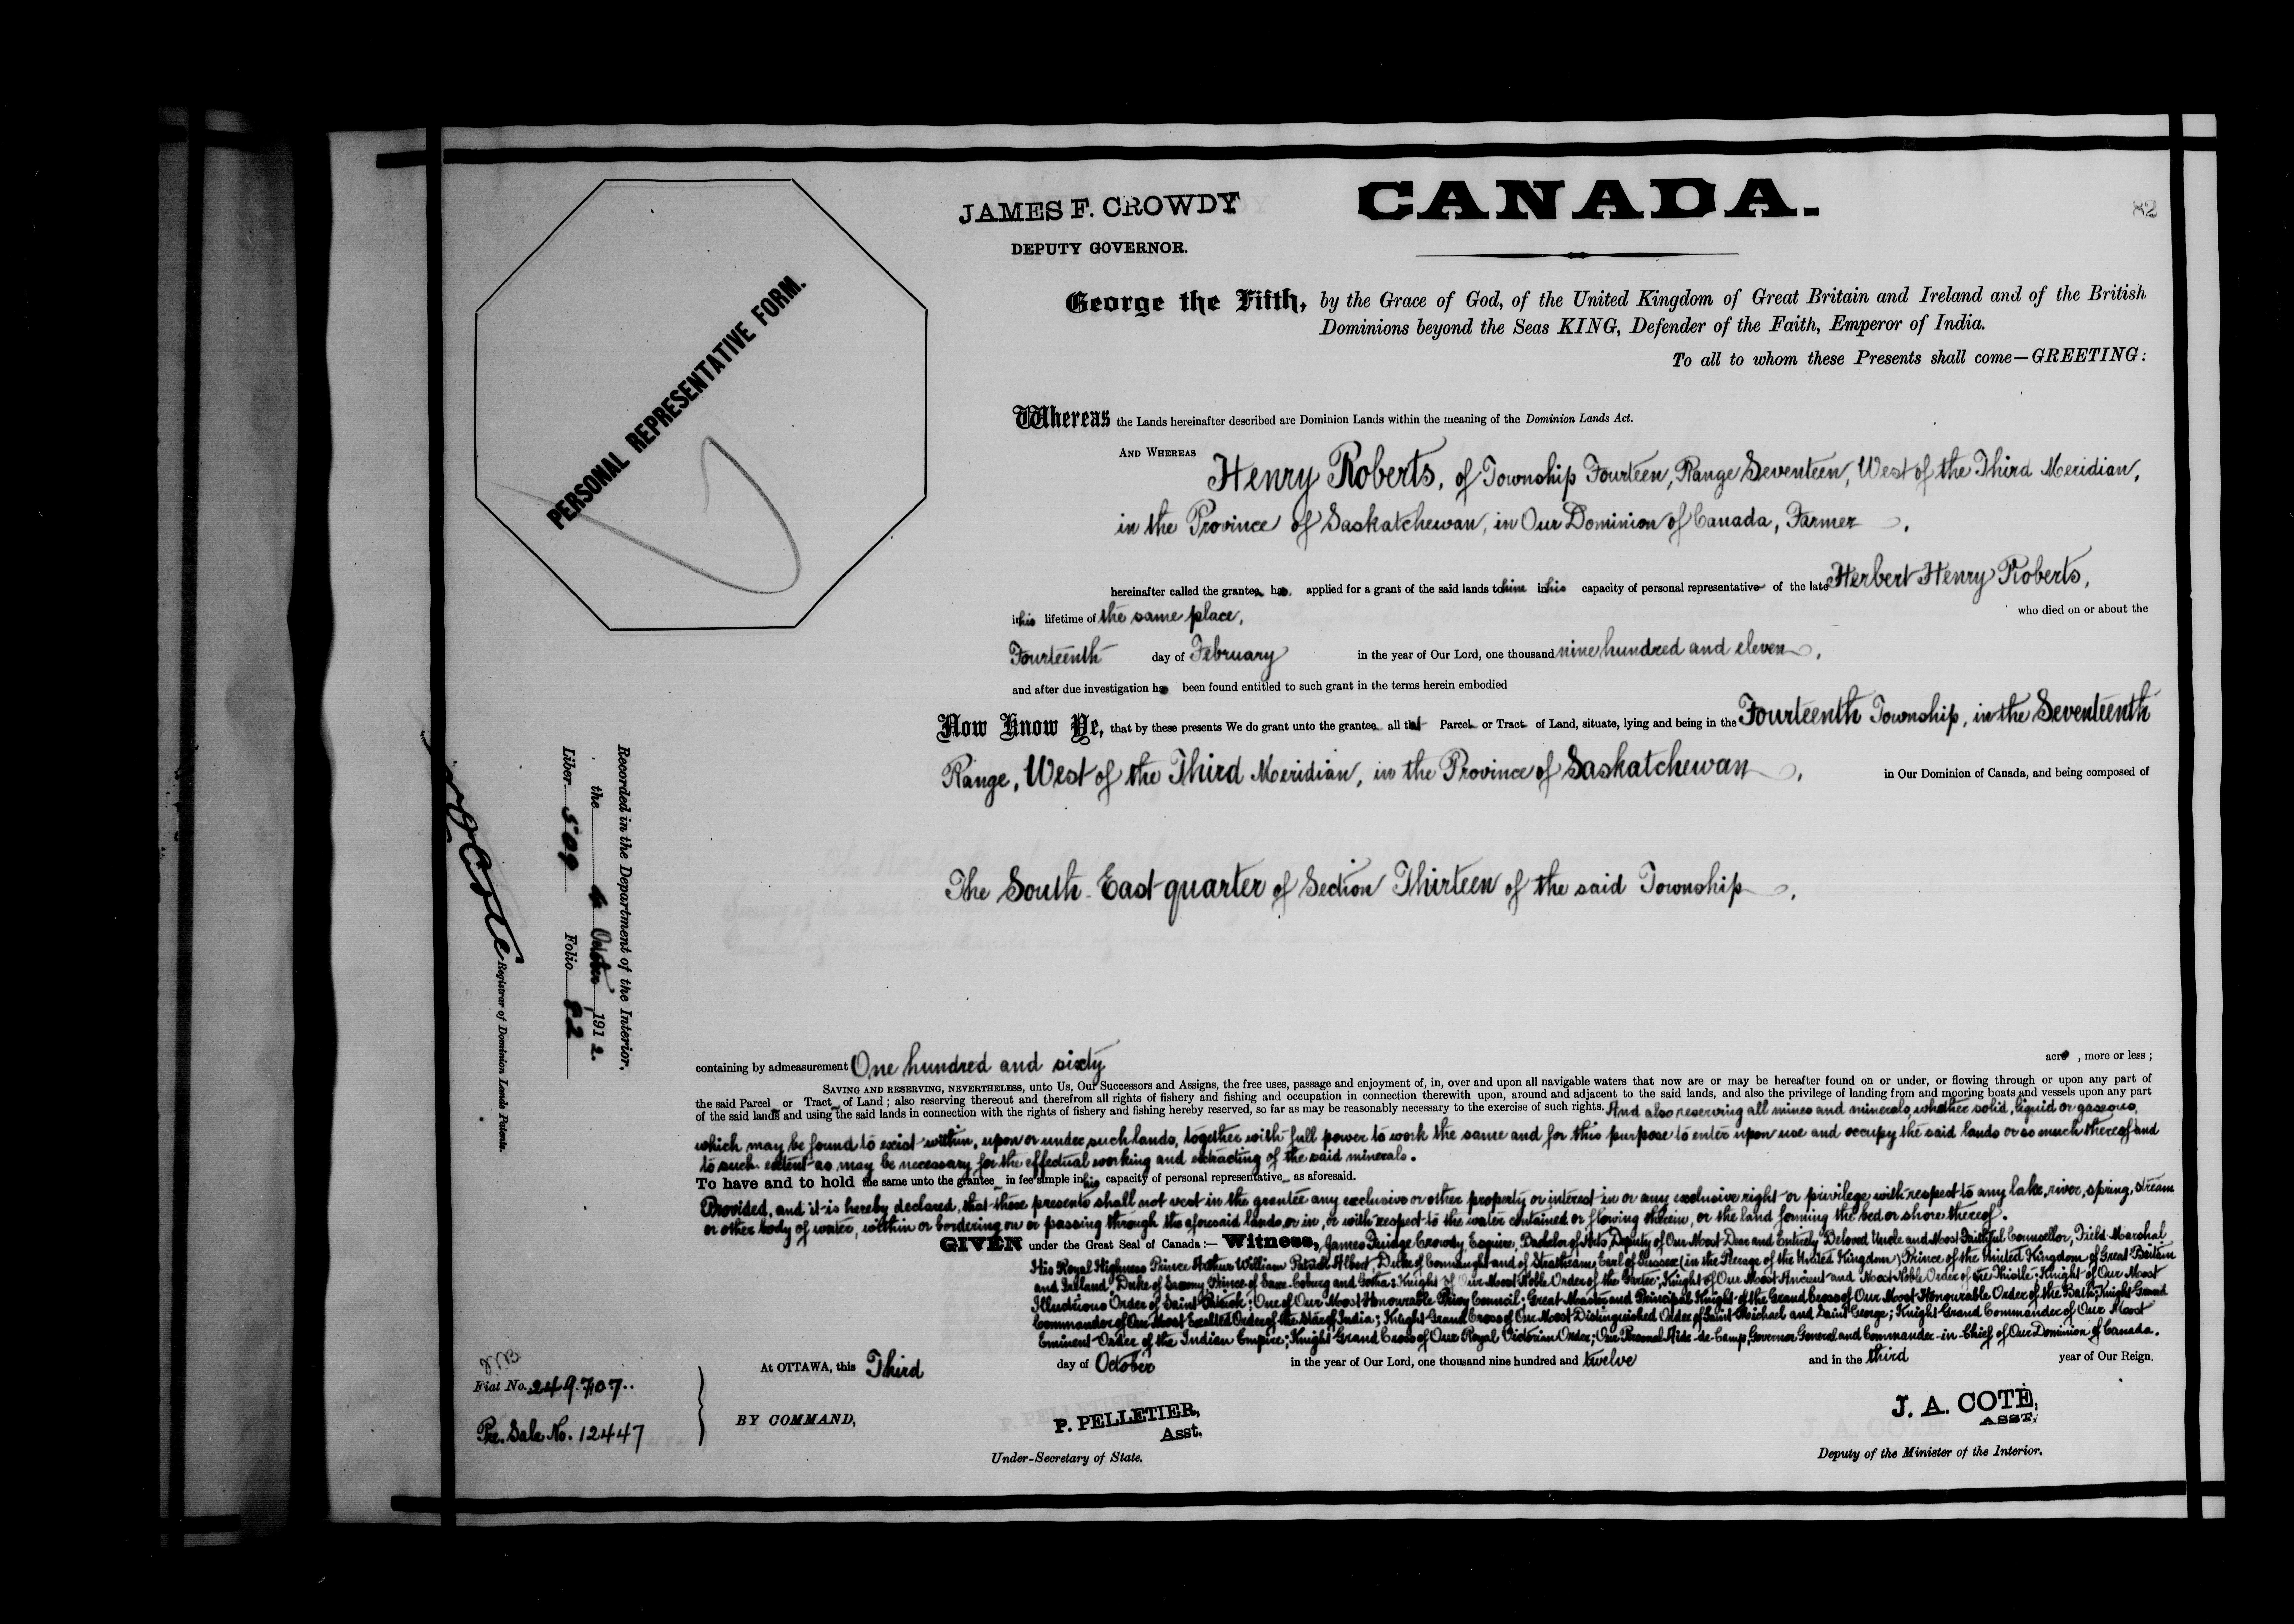 JAMES F. CROWDY
DEPUTY GOVERNOR.
CANADA.
82
PERSONAL REPRESENTATIVE FORM.
George the Fifth, by the Grace of God, of the United Kingdom of Great Britain and Ireland and of the British
Dominions beyond the Seas KING, Defender of the Faith, Emperor of India.
To all to whom these Presents shall come—GREETING:
Whereas the Lands hereinafter described are Dominion Lands within the meaning of the Dominion Lands Act.
AND WHEREAS Henry Roberts, of Township Fourteen, Range Seventeen, West of the Third Meridian,
in the Province of Saskatchewan, in Our Dominion of Canada, Farmer,
hereinafter called the grantee has applied for a grant of the said lands to him in his capacity of personal representative of the late Herbert Henry Roberts,
in his lifetime of the same place, who died on or about the
Fourteenth day of February in the year of Our Lord, one thousand nine hundred and eleven,
and after due investigation has been found entitled to such grant in the terms herein embodied
Now Know Ye, that by these presents We do grant unto the grantee all that Parcel or Tract of Land, situate, lying and being in the Fourteenth Township, in the Seventeenth
Range, West of the Third Meridian, in the Province of Saskatchewan, in Our Dominion of Canada, and being composed of
The South-East quarter of Section Thirteen of the said Township,
containing by admeasurement One hundred and sixty acres, more or less;
SAVING AND RESERVING, NEVERTHELESS, unto Us, Our Successors and Assigns, the free uses, passage and enjoyment of, in, over and upon all navigable waters that now are or may be hereafter found on or under, or flowing through or upon any part of
the said Parcel or Tract of Land; also reserving thereout and therefrom all rights of fishery and fishing and occupation in connection therewith upon, around and adjacent to the said lands, and also the privilege of landing from and mooring boats and vessels upon any part
of the said lands and using the said lands in connection with the rights of fishery and fishing hereby reserved, so far as may be reasonably necessary to the exercise of such rights. And also reserving all mines and minerals, whether solid, liquid or gaseous,
which may be found to exist within, upon or under such lands, together with full power to work the same and for this purpose to enter upon use and occupy the said lands or so much thereof and
to such extent as may be necessary for the effectual working and extracting of the said minerals.
To have and to hold the same unto the grantee in fee simple in his capacity of personal representative as aforesaid.
Provided, and it is hereby declared, that these presents shall not vest in the grantee any exclusive or other property or interest in or any exclusive right or privilege with respect to any lake, river, spring, stream
or other body of water, within or bordering on or passing through the aforesaid lands, or in, or with respect to the water contained or flowing therein, or the land forming the bed or shore thereof.
GIVEN under the Great Seal of Canada:— Witness, James Crowdy Esquire, Bachelor of Arts, Deputy of Our Most Dear and Entirely Beloved Uncle and Most Faithful Counsellor, Field Marshal
His Royal Highness Prince Arthur William Patrick Albert, Duke of Connaught and of Strathearn, Earl of Sussex (in the Peerage of the United Kingdom) Prince of the United Kingdom of Great Britain
and Ireland, Duke of Saxony, Prince of Saxe-Coburg and Gotha; Knight of Our Most Noble Order of the Garter; Knight of Our Most Ancient and Most Noble Order of the Thistle; Knight of Our Most
Illustrious Order of Saint Patrick; One of Our Most Honourable Privy Council; Great Master and Principal Knight of the Grand Cross of Our Most Honourable Order of the Bath; Knight Grand
Commander of Our Most Exalted Order of the Star of India; Knight Grand Cross of Our Most Distinguished Order of Saint Michael and Saint George; Knight Grand Commander of Our Most
Eminent Order of the Indian Empire; Knight Grand Cross of Our Royal Victorian Order; Our Personal Aide-de-Camp, Governor General and Commander-in-Chief of Our Dominion of Canada.
At OTTAWA, this Third day of October in the year of Our Lord, one thousand nine hundred and twelve and in the third year of Our Reign.
BY COMMAND,
P. PELLETIER,
Asst.
Under-Secretary of State.
J. A. COTE,
ASST.
Deputy of the Minister of the Interior.
Fiat No. 249.707..
Pre. Sale No. 12447
Recorded in the Department of the Interior.
the October 1912.
Liber 509 Folio 82
Cote
Registrar of Dominion Lands Patents.